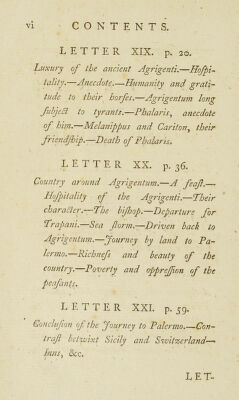 vi CONTENTS.
LETTER XIX. p. 20.
Luxury of the ancient Agrigenti.—Hoſpi-
tality.—Anecdote.—Humanity and grati-
tude to their horſes.—Agrigentum long
ſubject to tyrants.—Phalaris, anecdote
of him.—Melanippus and Cariton, their
friendſhip.—Death of Phalaris.
LETTER XX. p. 36.
Country around Agrigentum.—A feaſt.—
Hoſpitality of the Agrigenti.—Their
character.—The biſhop.—Departure for
Trapani.—Sea ſtorm.—Driven back to
Agrigentum.—Journey by land to Pa-
lermo.—Richneſs and beauty of the
country.—Poverty and oppreſſion of the
peaſants.
LETTER XXI. p. 59.
Concluſion of the Journey to Palermo.—Con-
traſt betwixt Sicily and Switzerland—
Inns, &c.
LET-